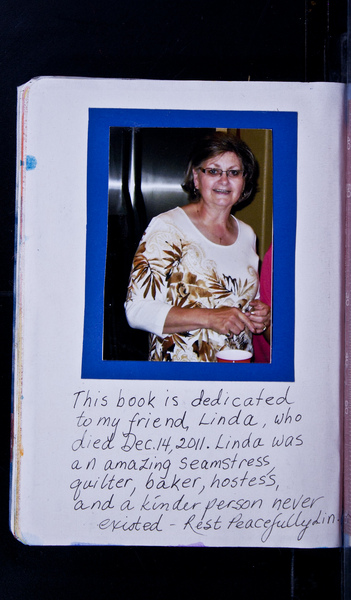 This book is dedicated
to my friend, Linda, who
died Dec. 14, 2011. Linda was
an amazing seamstress,
quilter, baker, hostess,
and a kinder person never
existed - Rest Peacefully Lin